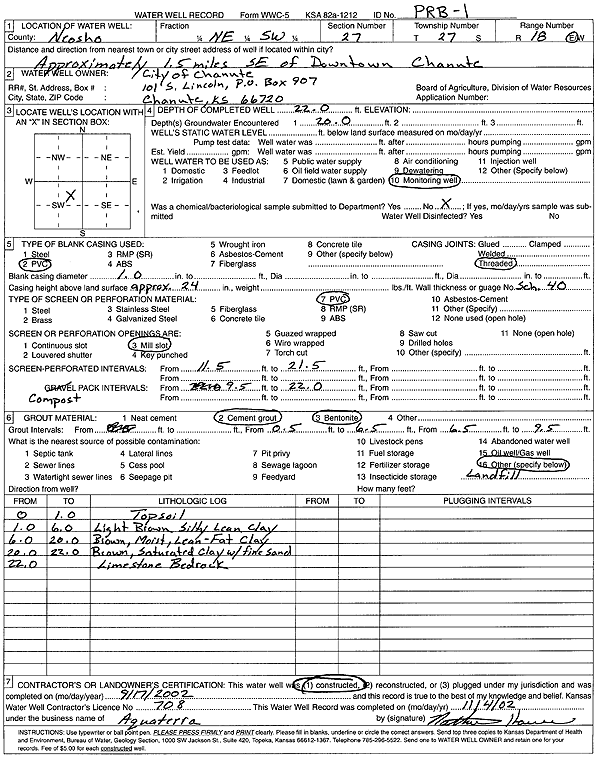 WATER WELL RECORD Form WWC-5 KSA 82a-1212 ID No. PRB-1
1 LOCATION OF WATER WELL: Fraction Section Number Township Number Range Number
County: Neosho ¼ NE ¼ SW ¼ 27 T 27 S R 18 E/W
Distance and direction from nearest town or city street address of well if located within city?
Approximately 1.5 miles SE of Downtown Chanute
2 WATER WELL OWNER: City of Chanute
RR#, St. Address, Box # : 101 S. Lincoln, P.O. Box 907 Board of Agriculture, Division of Water Resources
City, State, ZIP Code : Chanute, KS 66720 Application Number:
3 LOCATE WELL'S LOCATION WITH AN "X" IN SECTION BOX:
N
NW NE
W E
X
SW SE
S
4 DEPTH OF COMPLETED WELL 22.0 ft. ELEVATION:
Depth(s) Groundwater Encountered 1 20.0 ft. 2 ft. 3 ft.
WELL'S STATIC WATER LEVEL ft. below land surface measured on mo/day/yr
Pump test data: Well water was ft. after hours pumping gpm
Est. Yield gpm: Well water was ft. after hours pumping gpm
WELL WATER TO BE USED AS: 5 Public water supply 8 Air conditioning 11 Injection well
1 Domestic 3 Feedlot 6 Oil field water supply 9 Dewatering 12 Other (Specify below)
2 Irrigation 4 Industrial 7 Domestic (lawn & garden) 10 Monitoring well
Was a chemical/bacteriological sample submitted to Department? Yes No X ; If yes, mo/day/yrs sample was submitted Water Well Disinfected? Yes No
5 TYPE OF BLANK CASING USED: 5 Wrought iron 8 Concrete tile CASING JOINTS: Glued Clamped
1 Steel 3 RMP (SR) 6 Asbestos-Cement 9 Other (specify below) Welded
2 PVC 4 ABS 7 Fiberglass Threaded
Blank casing diameter 1.0 in. to ft., Dia in. to ft., Dia in. to ft.
Casing height above land surface approx. 24 in., weight lbs./ft. Wall thickness or guage No. Sch. 40
TYPE OF SCREEN OR PERFORATION MATERIAL: 7 PVC 10 Asbestos-Cement
1 Steel 3 Stainless Steel 5 Fiberglass 8 RMP (SR) 11 Other (Specify)
2 Brass 4 Galvanized Steel 6 Concrete tile 9 ABS 12 None used (open hole)
SCREEN OR PERFORATION OPENINGS ARE: 5 Guazed wrapped 8 Saw cut 11 None (open hole)
1 Continuous slot 3 Mill slot 6 Wiro wrapped 9 Drilled holes
2 Louvered shutter 4 Key punched 7 Torch cut 10 Other (specify) ft.
SCREEN-PERFORATED INTERVALS: From 11.5 ft. to 21.5 ft., From ft. to ft.
From ft. to ft., From ft. to ft.
GRAVEL PACK INTERVALS: From 9.5 ft. to 22.0 ft., From ft. to ft.
Compost From ft. to ft., From ft. to ft.
6 GROUT MATERIAL: 1 Neat cement 2 Cement grout 3 Bentonite 4 Other
Grout Intervals: From ft. to ft., From 0.5 ft. to 6.5 ft., From 6.5 ft. to 9.5 ft.
What is the nearest source of possible contamination: 10 Livestock pens 14 Abandoned water well
1 Septic tank 4 Lateral lines 7 Pit privy 11 Fuel storage 15 Oil well/Gas well
2 Sewer lines 5 Cess pool 8 Sewage lagoon 12 Fertilizer storage 16 Other (specify below)
3 Watertight sewer lines 6 Seepage pit 9 Feedyard 13 Insecticide storage Landfill
Direction from well? How many feet?
FROM TO LITHOLOGIC LOG FROM TO PLUGGING INTERVALS
0 1.0 Topsoil
1.0 6.0 Light Brown, Silty Lean Clay
6.0 20.0 Brown, Moist, Lean-Fat Clay
20.0 22.0 Brown, Saturated Clay w/ fine sand
22.0 Limestone Bedrock
7 CONTRACTOR'S OR LANDOWNER'S CERTIFICATION: This water well was (1) constructed, (2) reconstructed, or (3) plugged under my jurisdiction and was
completed on (mo/day/year) 9/17/2002 and this record is true to the best of my knowledge and belief. Kansas
Water Well Contractor's Licence No. 708 This Water Well Record was completed on (mo/day/yr) 11/4/02
under the business name of Aquaterra by (signature)
INSTRUCTIONS: Use typewriter or ball point pen. PLEASE PRESS FIRMLY and PRINT clearly. Please fill in blanks, underline or circle the correct answers. Send top three copies to Kansas Department of Health
and Environment, Bureau of Water, Geology Section, 1000 SW Jackson St., Suite 420, Topeka, Kansas 66612-1367. Telephone 785-296-5522. Send one to WATER WELL OWNER and retain one for your
records. Fee of $5.00 for each constructed well.